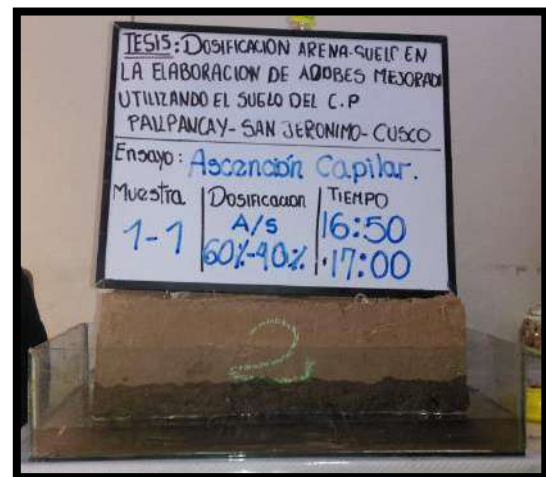 TESIS: DOSIFICACION ARENA-SUELO EN
LA ELABORACION DE ADOBES MEJORAD
UTILIZANDO EL SUELO DEL C.P
PALLPANCAY - SAN JERONIMO - CUSCO
Ensayo: Ascención Capilar.
Muestra Dosificacion TIEMPO
1-1 A/S 16:50
60%-40% 17:00
2